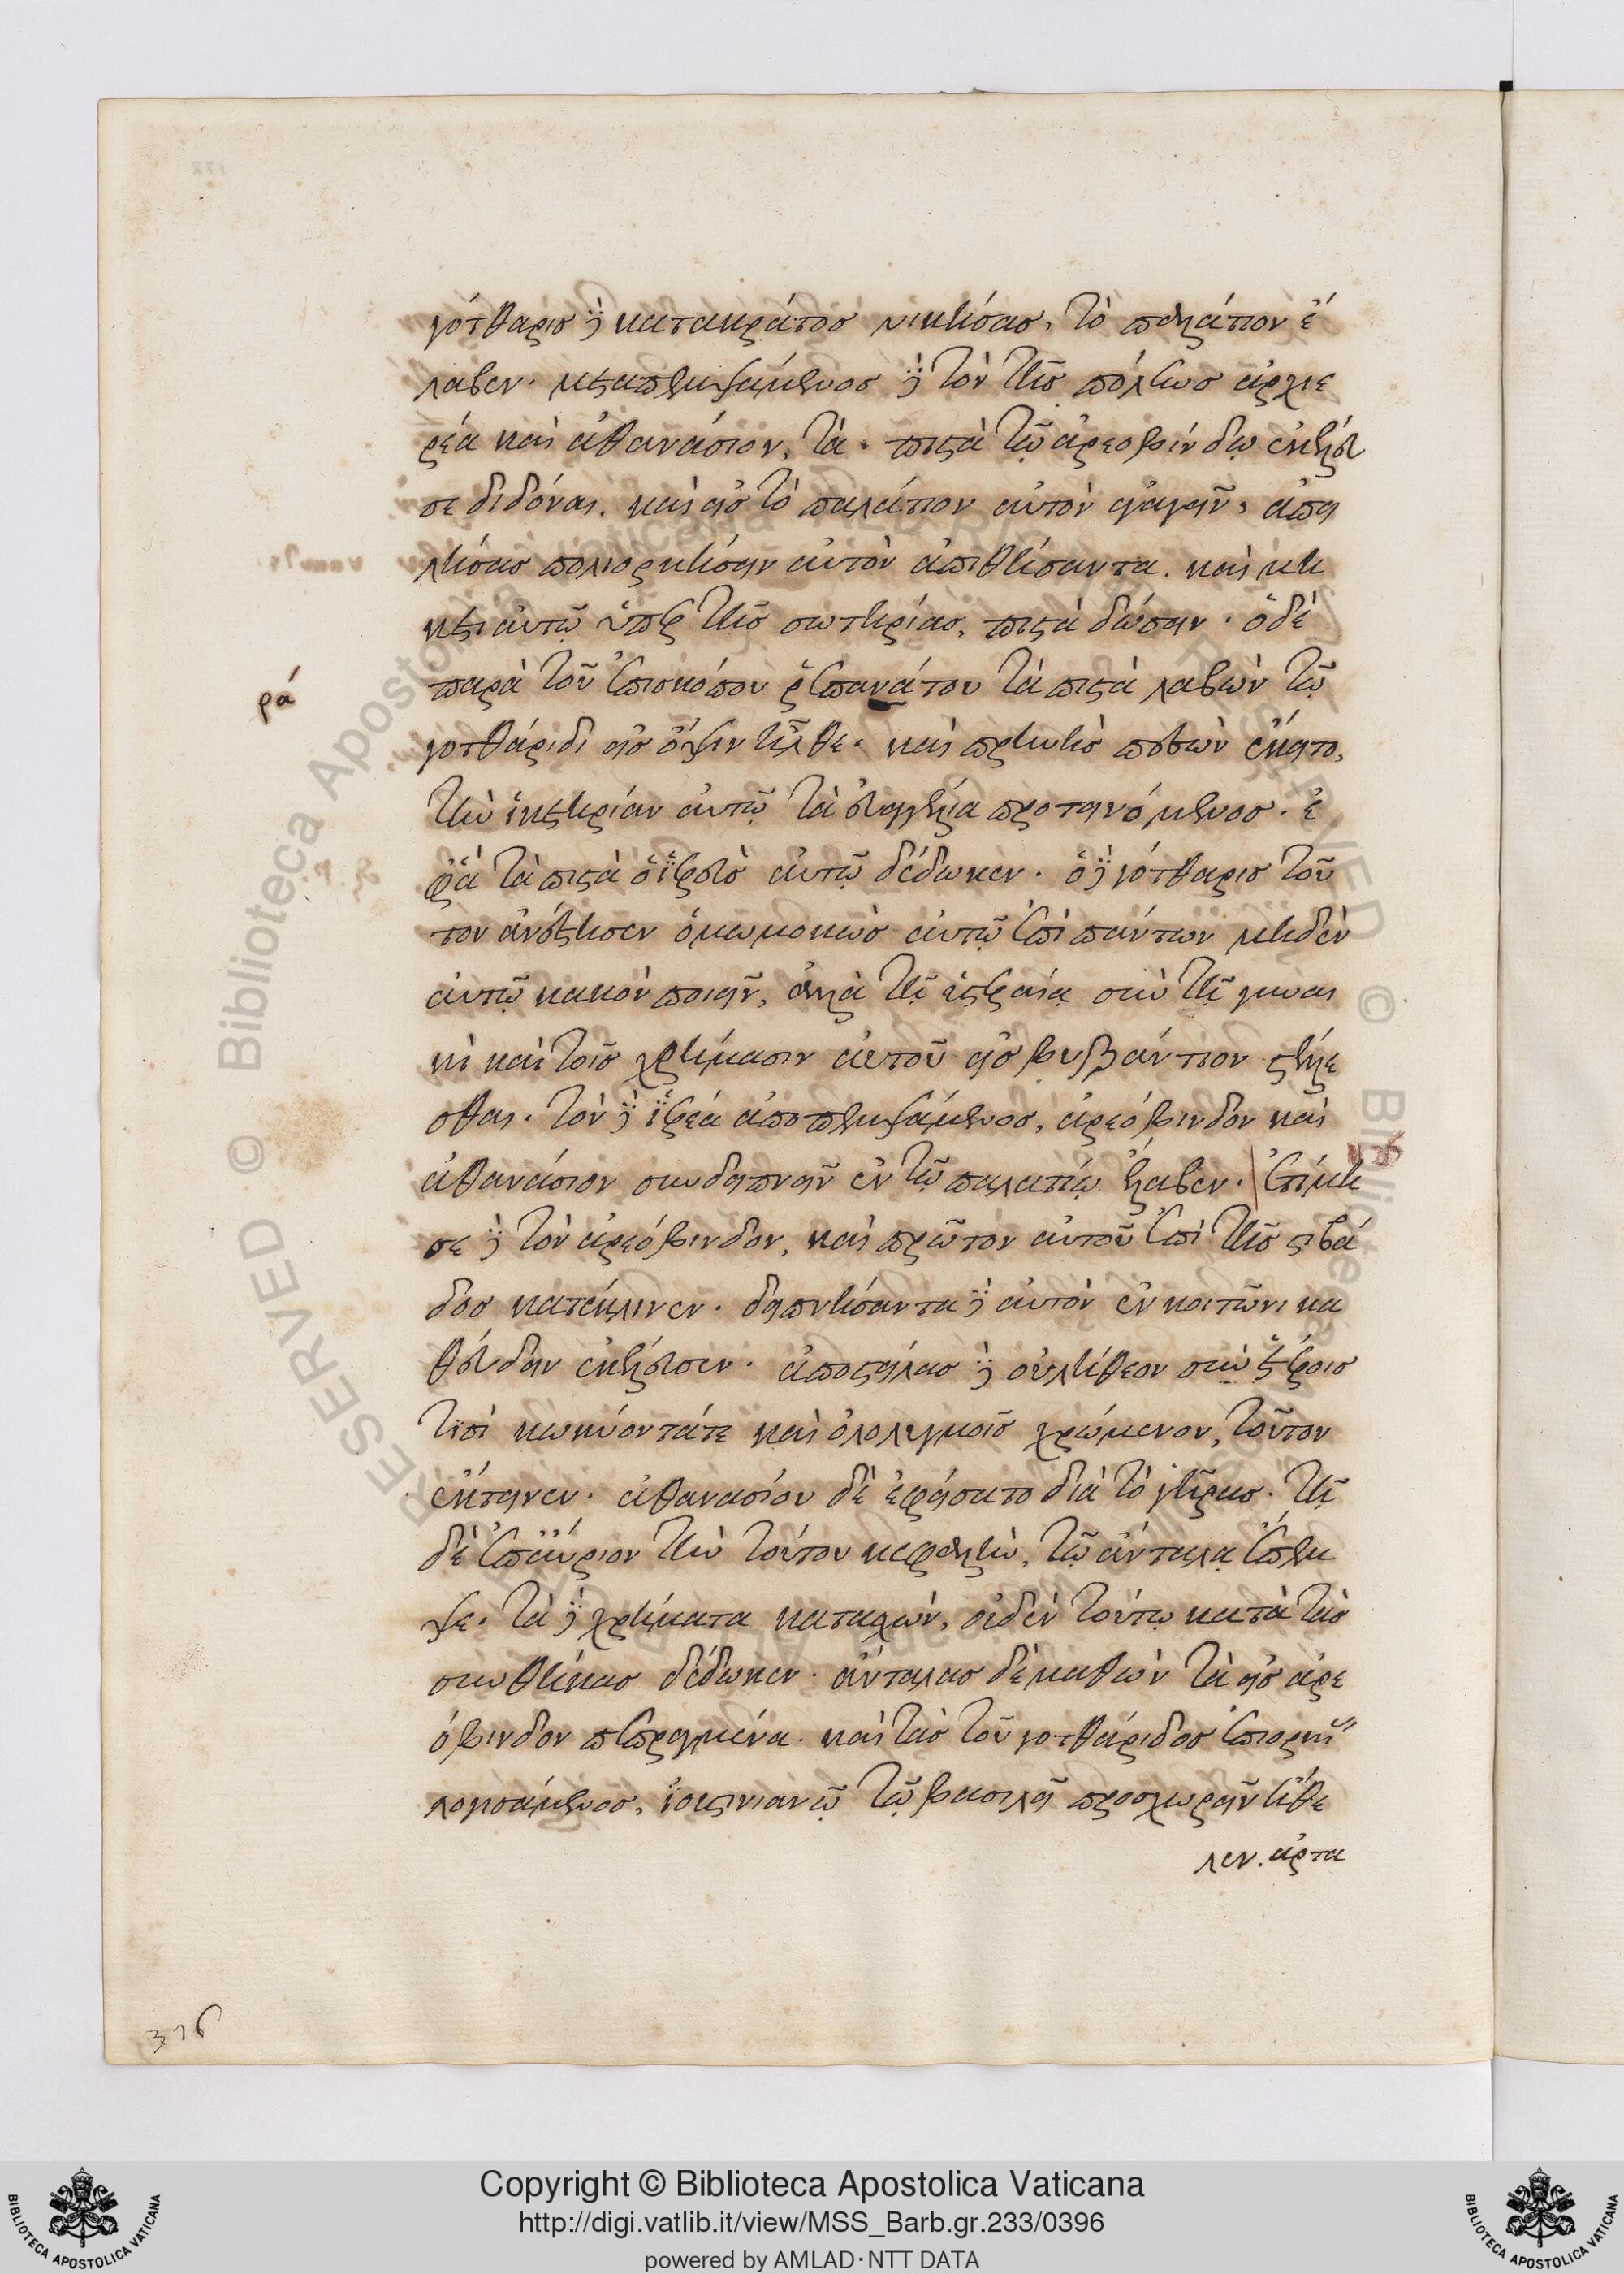 γότθαρις δὲ κατακράτος νικήσας, τὸ παλάτιον ἔ
λαβεν. μεταπεμψάμενος δὲ τὸν τῆς πόλεως ἀρχιε
ρέα καὶ ἀθανάσιον, τὰ πιστὰ τῷ ἀρεοβίνδῳ ἐκέλευ
σε διδόναι. καὶ εἰς τὸ παλάτιον αὐτὸν ἀγαγεῖν, ἀπει
λήσας πολιορκήσειν αὐτὸν ἀπειθήσαντα. καὶ μὴ
κέτι αὐτῷ ὑπὲρ τῆς σωτηρίας, πιστὰ δώσειν. ὁ δὲ
παρὰ τοῦ ἐπισκόπου ῥεπαράτου τὰ πιστὰ λαβὼν τῷ
γοτθάριδι εἰς ὄψιν ἦλθε. καὶ πρηνὴς πεσὼν ἔκειτο,
τὴν ἱκετηρίαν αὐτῷ τὰ εὐαγγέλια προτεινόμενος. ἐ
φ' ἃ τὰ πιστὰ ὁ ἱερεὺς αὐτῷ δέδωκεν. ὁ δὲ γότθαρις τοῦ
τον ἀνέστησεν ὀμωμοκὼς αὐτῷ ἐπὶ πάντων μηδὲν
αὐτῷ κακὸν ποιεῖν, ἀλλὰ τῇ ὑστεραίᾳ σὺν τῇ γυναι
κὶ καὶ τοῖς χρήμασιν αὐτοῦ εἰς βυζάντιον στέλλε
σθαι. τὸν δὲ ἱερέα ἀποπεμψάμενος, ἀρεόβινδον καὶ
ἀθανάσιον συνδειπνεῖν ἐν τῷ παλατίῳ ἔλαβεν. ἐτίμη
σε δὲ τὸν ἀρεόβινδον, καὶ πρῶτον αὐτοῦ ἐπὶ τῆς στιβά
δος κατέκλινεν. δειπνήσαντα δὲ αὐτὸν ἐν κοιτῶνι κα
θεύδειν ἐκέλευσεν. ἀποστείλας δὲ οὐλίθεον σὺν ἑτέροις
τισὶ κωκύοντά τε καὶ ὀλολυγμοῖς χρώμενον, τοῦτον
ἔκτεινεν. ἀθανασίου δὲ ἐφείσατο διὰ τὸ γῆρας. τῇ
δὲ ἐπαύριον τὴν τούτου κεφαλὴν, τῷ ἀντάλᾳ ἔπεμ
ψε. τὰ δὲ χρήματα κατασχὼν, οὐδὲν τούτῳ κατὰ τὰς
συνθήκας δέδωκεν. ἀντάλας δὲ μαθὼν τὰ εἰς ἀρε
όβινδον πεπραγμένα. καὶ τὰς τοῦ γοτθάριδος ἐπιορκί
λογισάμενος, ἰουστινιανῷ τῷ βασιλεῖ προσχωρεῖν ἤθε
λεν. ἀρτα
ρά
376
Copyright © Biblioteca Apostolica Vaticana
http://digi.vatlib.it/view/MSS_Barb.gr.233/0396
powered by AMLAD·NTT DATA